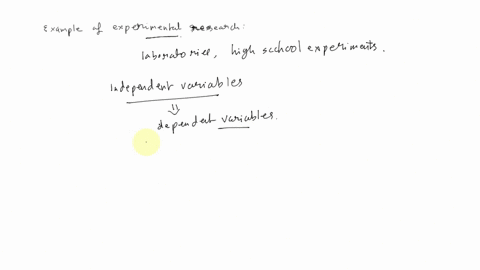 Example of experimental research:
laboratories, high scchool experiments.
Independent variables
⇓
dependent variables.